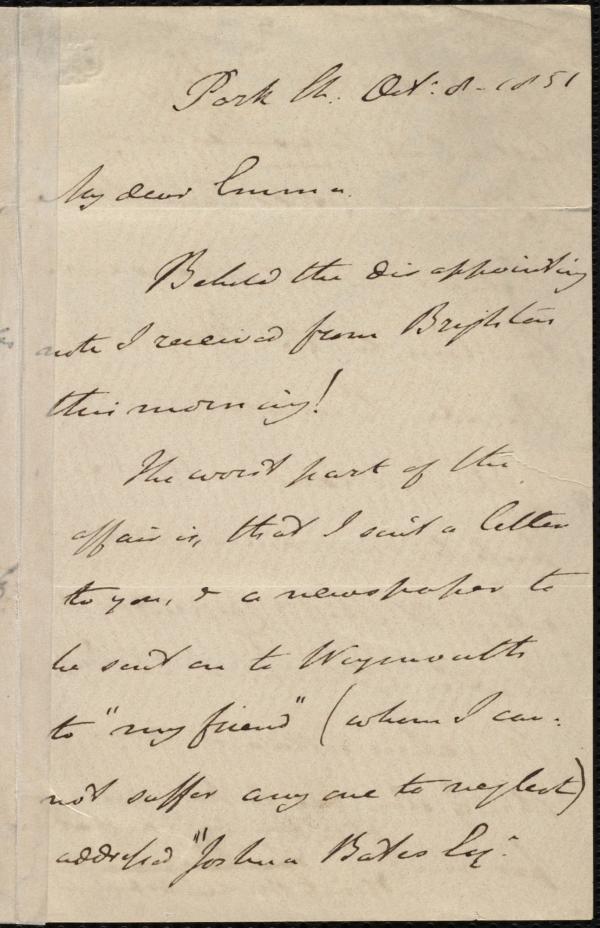 Park St. Oct: 8 - 1851
My dear Emma
Behold the disappointing
note I received from Brighton
this morning!
The worst part of the
affair is, that I sent a letter
to you, & a newspaper to
be sent on to Weymouth
to "my friend" (whom I can-
not suffer any one to neglect)
addressed "Joshua Bates Esqr